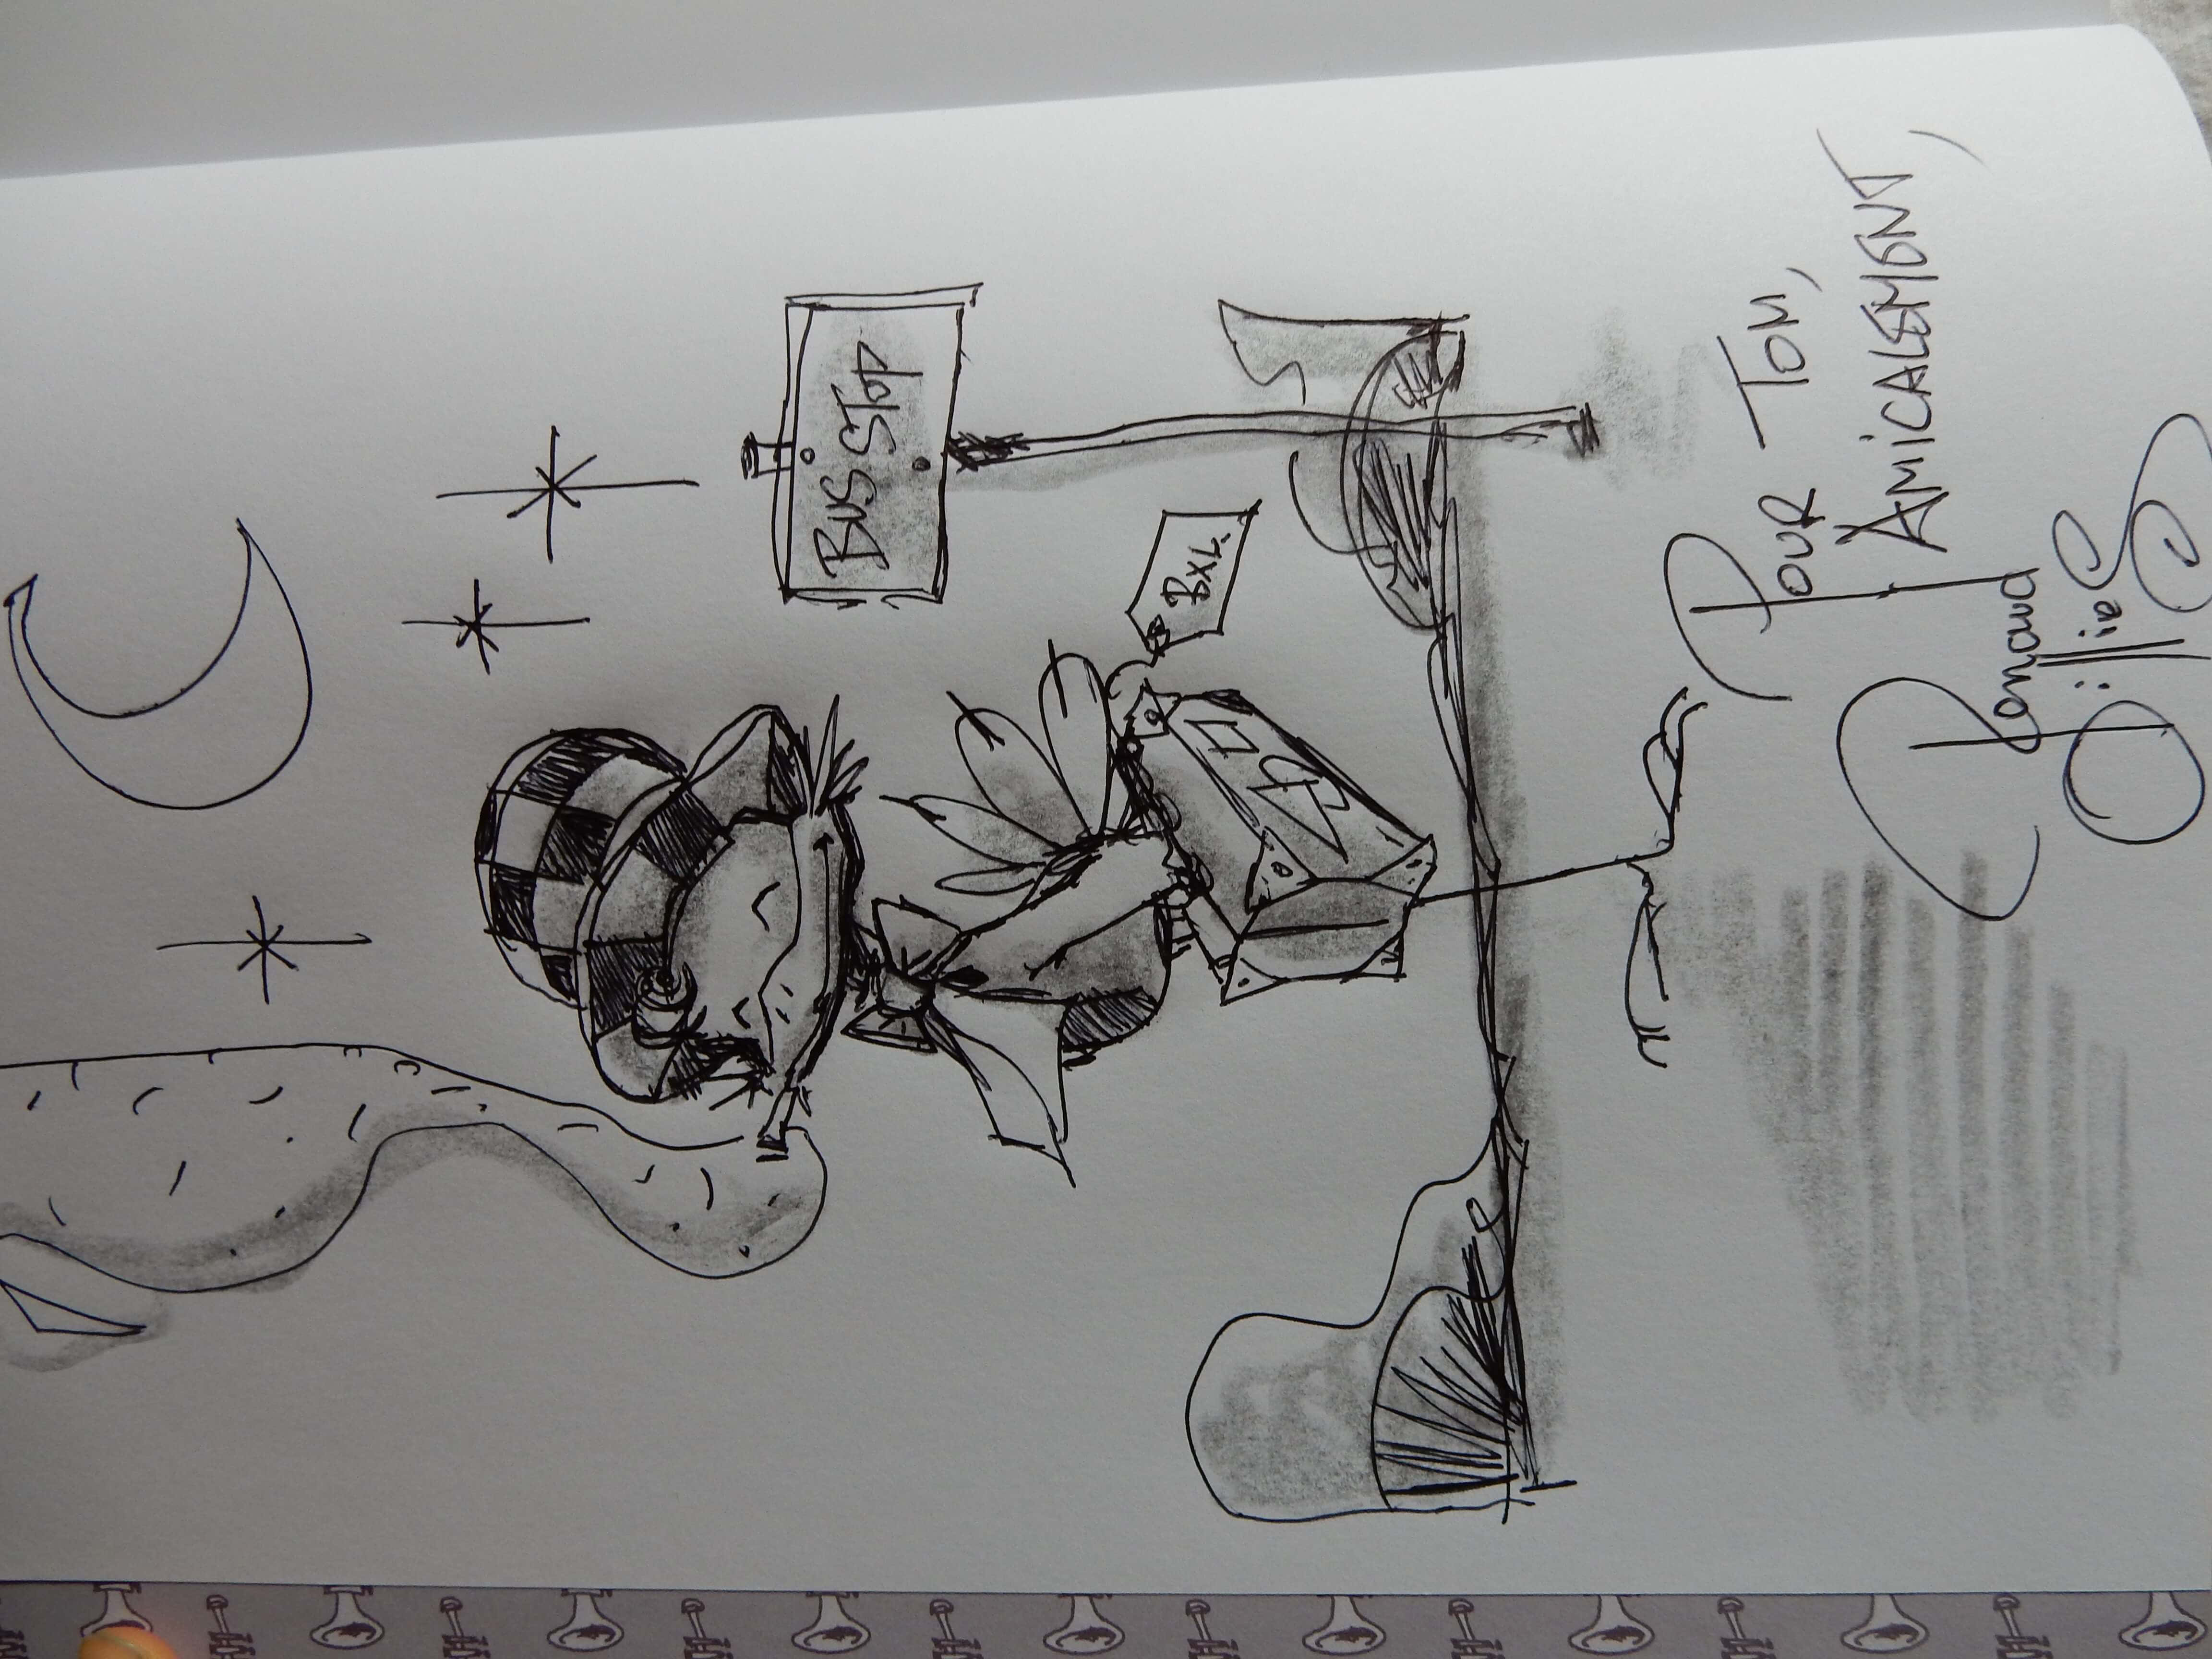 BUS STOP
BXL.
POUR TOM,
AMICALEMENT,
Renaud
Dillies